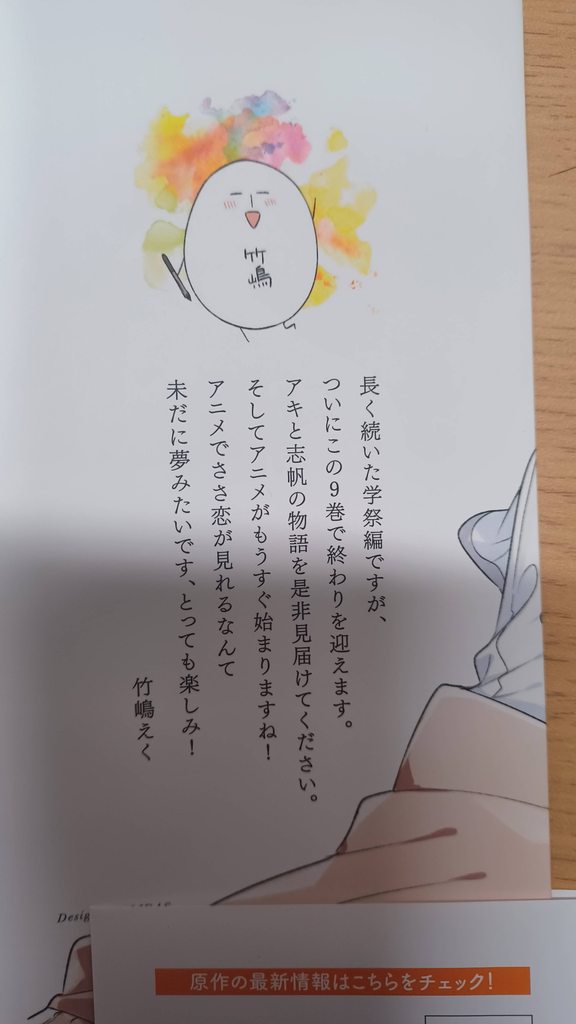 竹嶋
長く続いた学祭編ですが、
ついにこの9巻で終わりを迎えます。
アキと志帆の物語を是非見届けてください。
そしてアニメがもうすぐ始まりますね！
アニメでささ恋が見れるなんて
未だに夢みたいです、とっても楽しみ！
竹嶋えく
原作の最新情報はこちらをチェック！